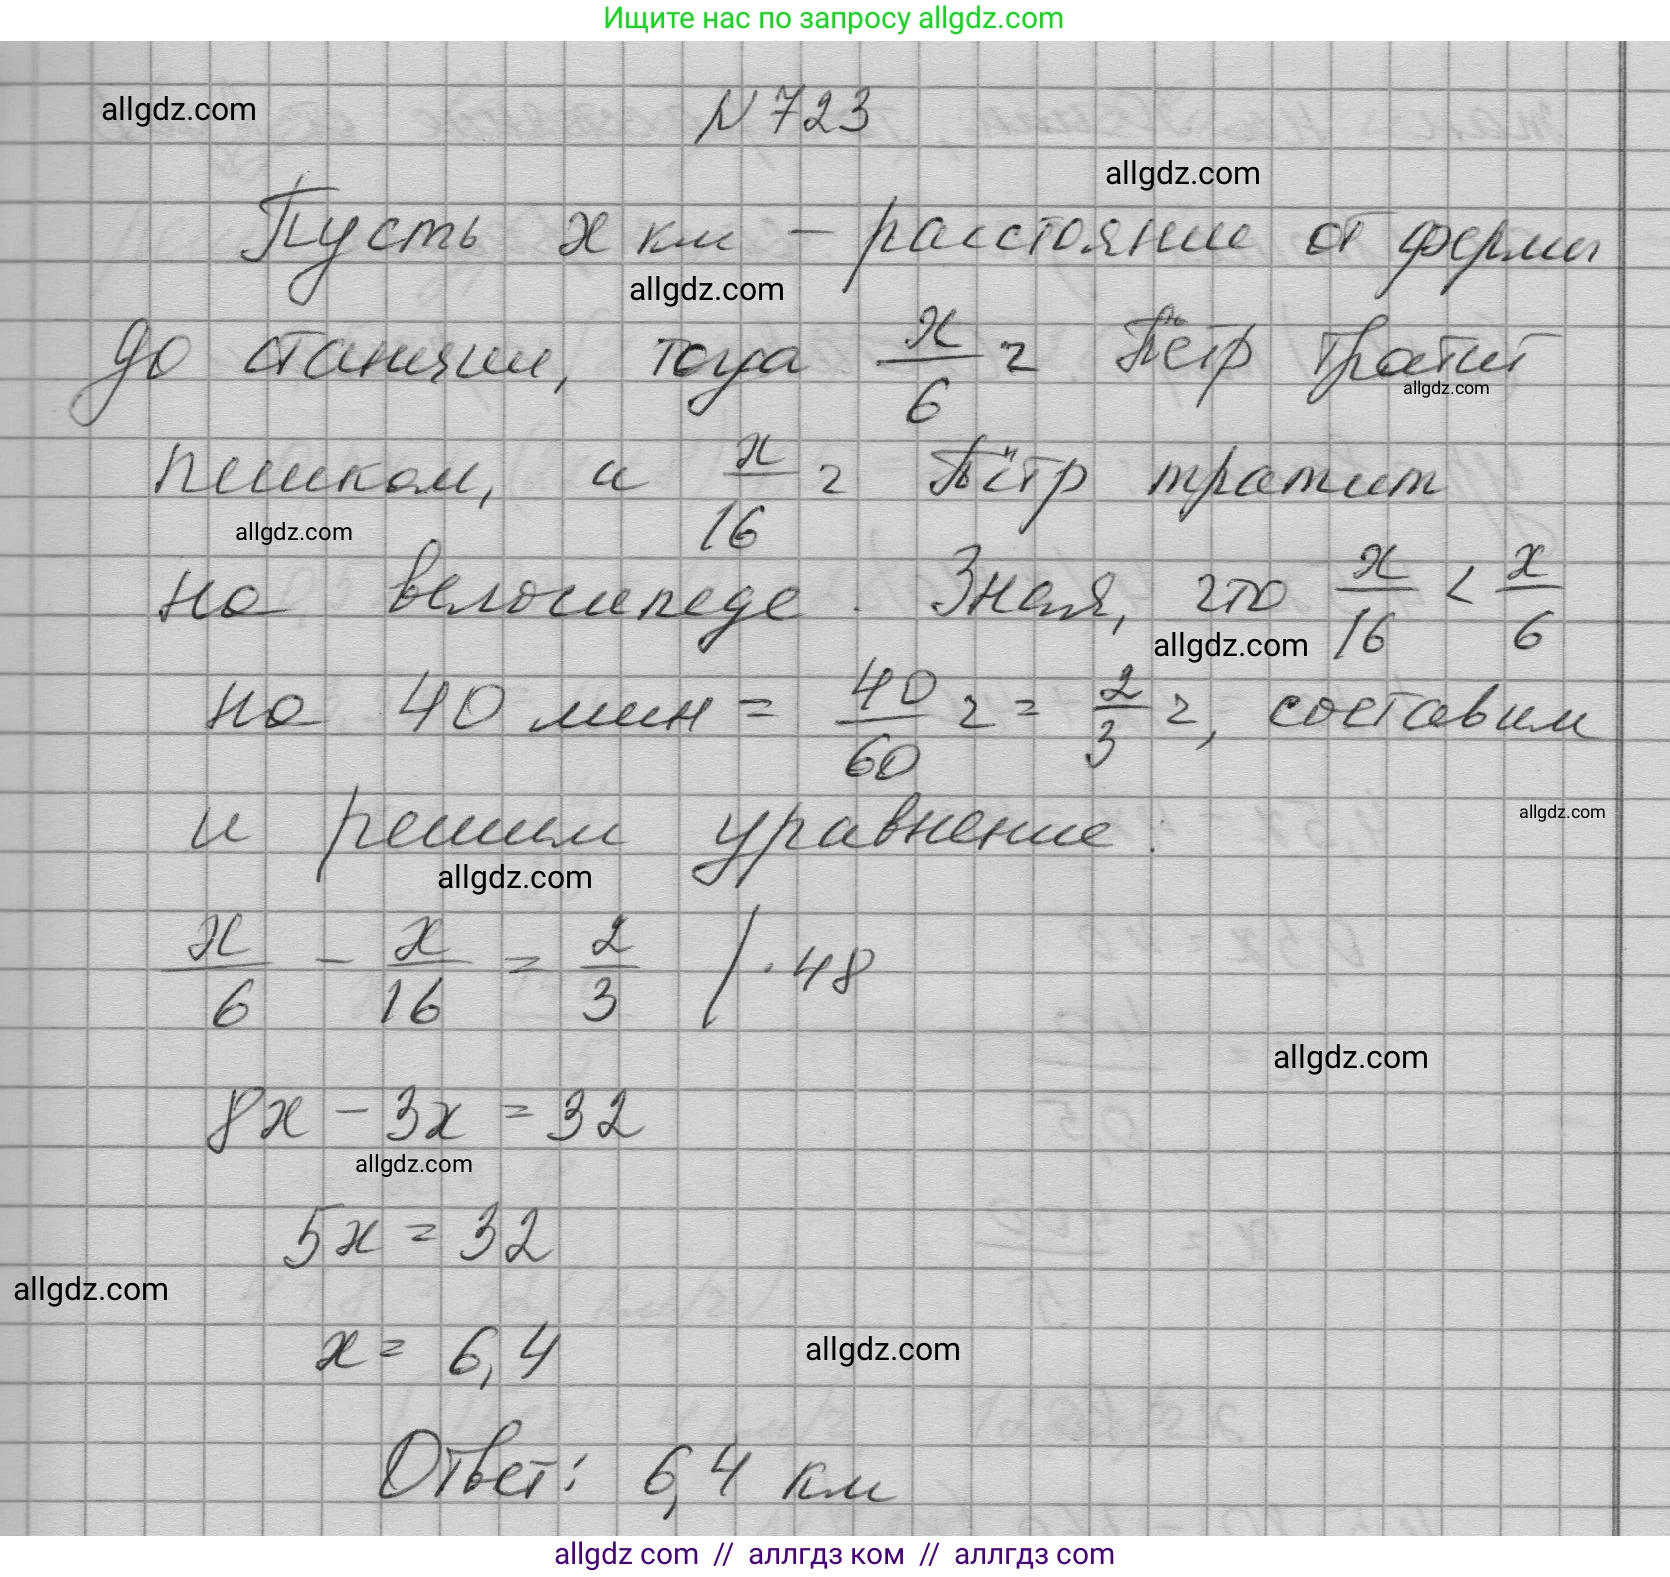 Ищите нас по запросу allgdz.com
allgdz.com
N 723
allgdz.com
Пусть x км – расстояние от фермы
allgdz.com
до станции, тогда x/6 ч Пётр тратит
allgdz.com
пешком, и x/16 ч Пётр тратит
allgdz.com
на велосипеде. Зная, что x/16 < x/6
allgdz.com
на 40 мин = 40/60 ч = 2/3 ч, составим
allgdz.com
и решим уравнение:
allgdz.com
x/6 - x/16 = 2/3 | · 48
allgdz.com
8x - 3x = 32
allgdz.com
5x = 32
allgdz.com
x = 6,4
allgdz.com
Ответ: 6,4 км
allgdz com // аллгдз ком // аллгдз com